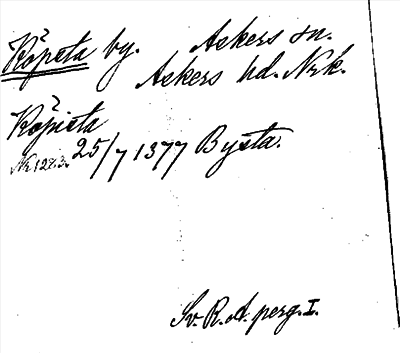 Köpeta by. Askers sn.
Askers hd. Nrk.
Köpieta
Nr 1283. 25/7 1377 Bysta.
Sv. R. A. perg. I.